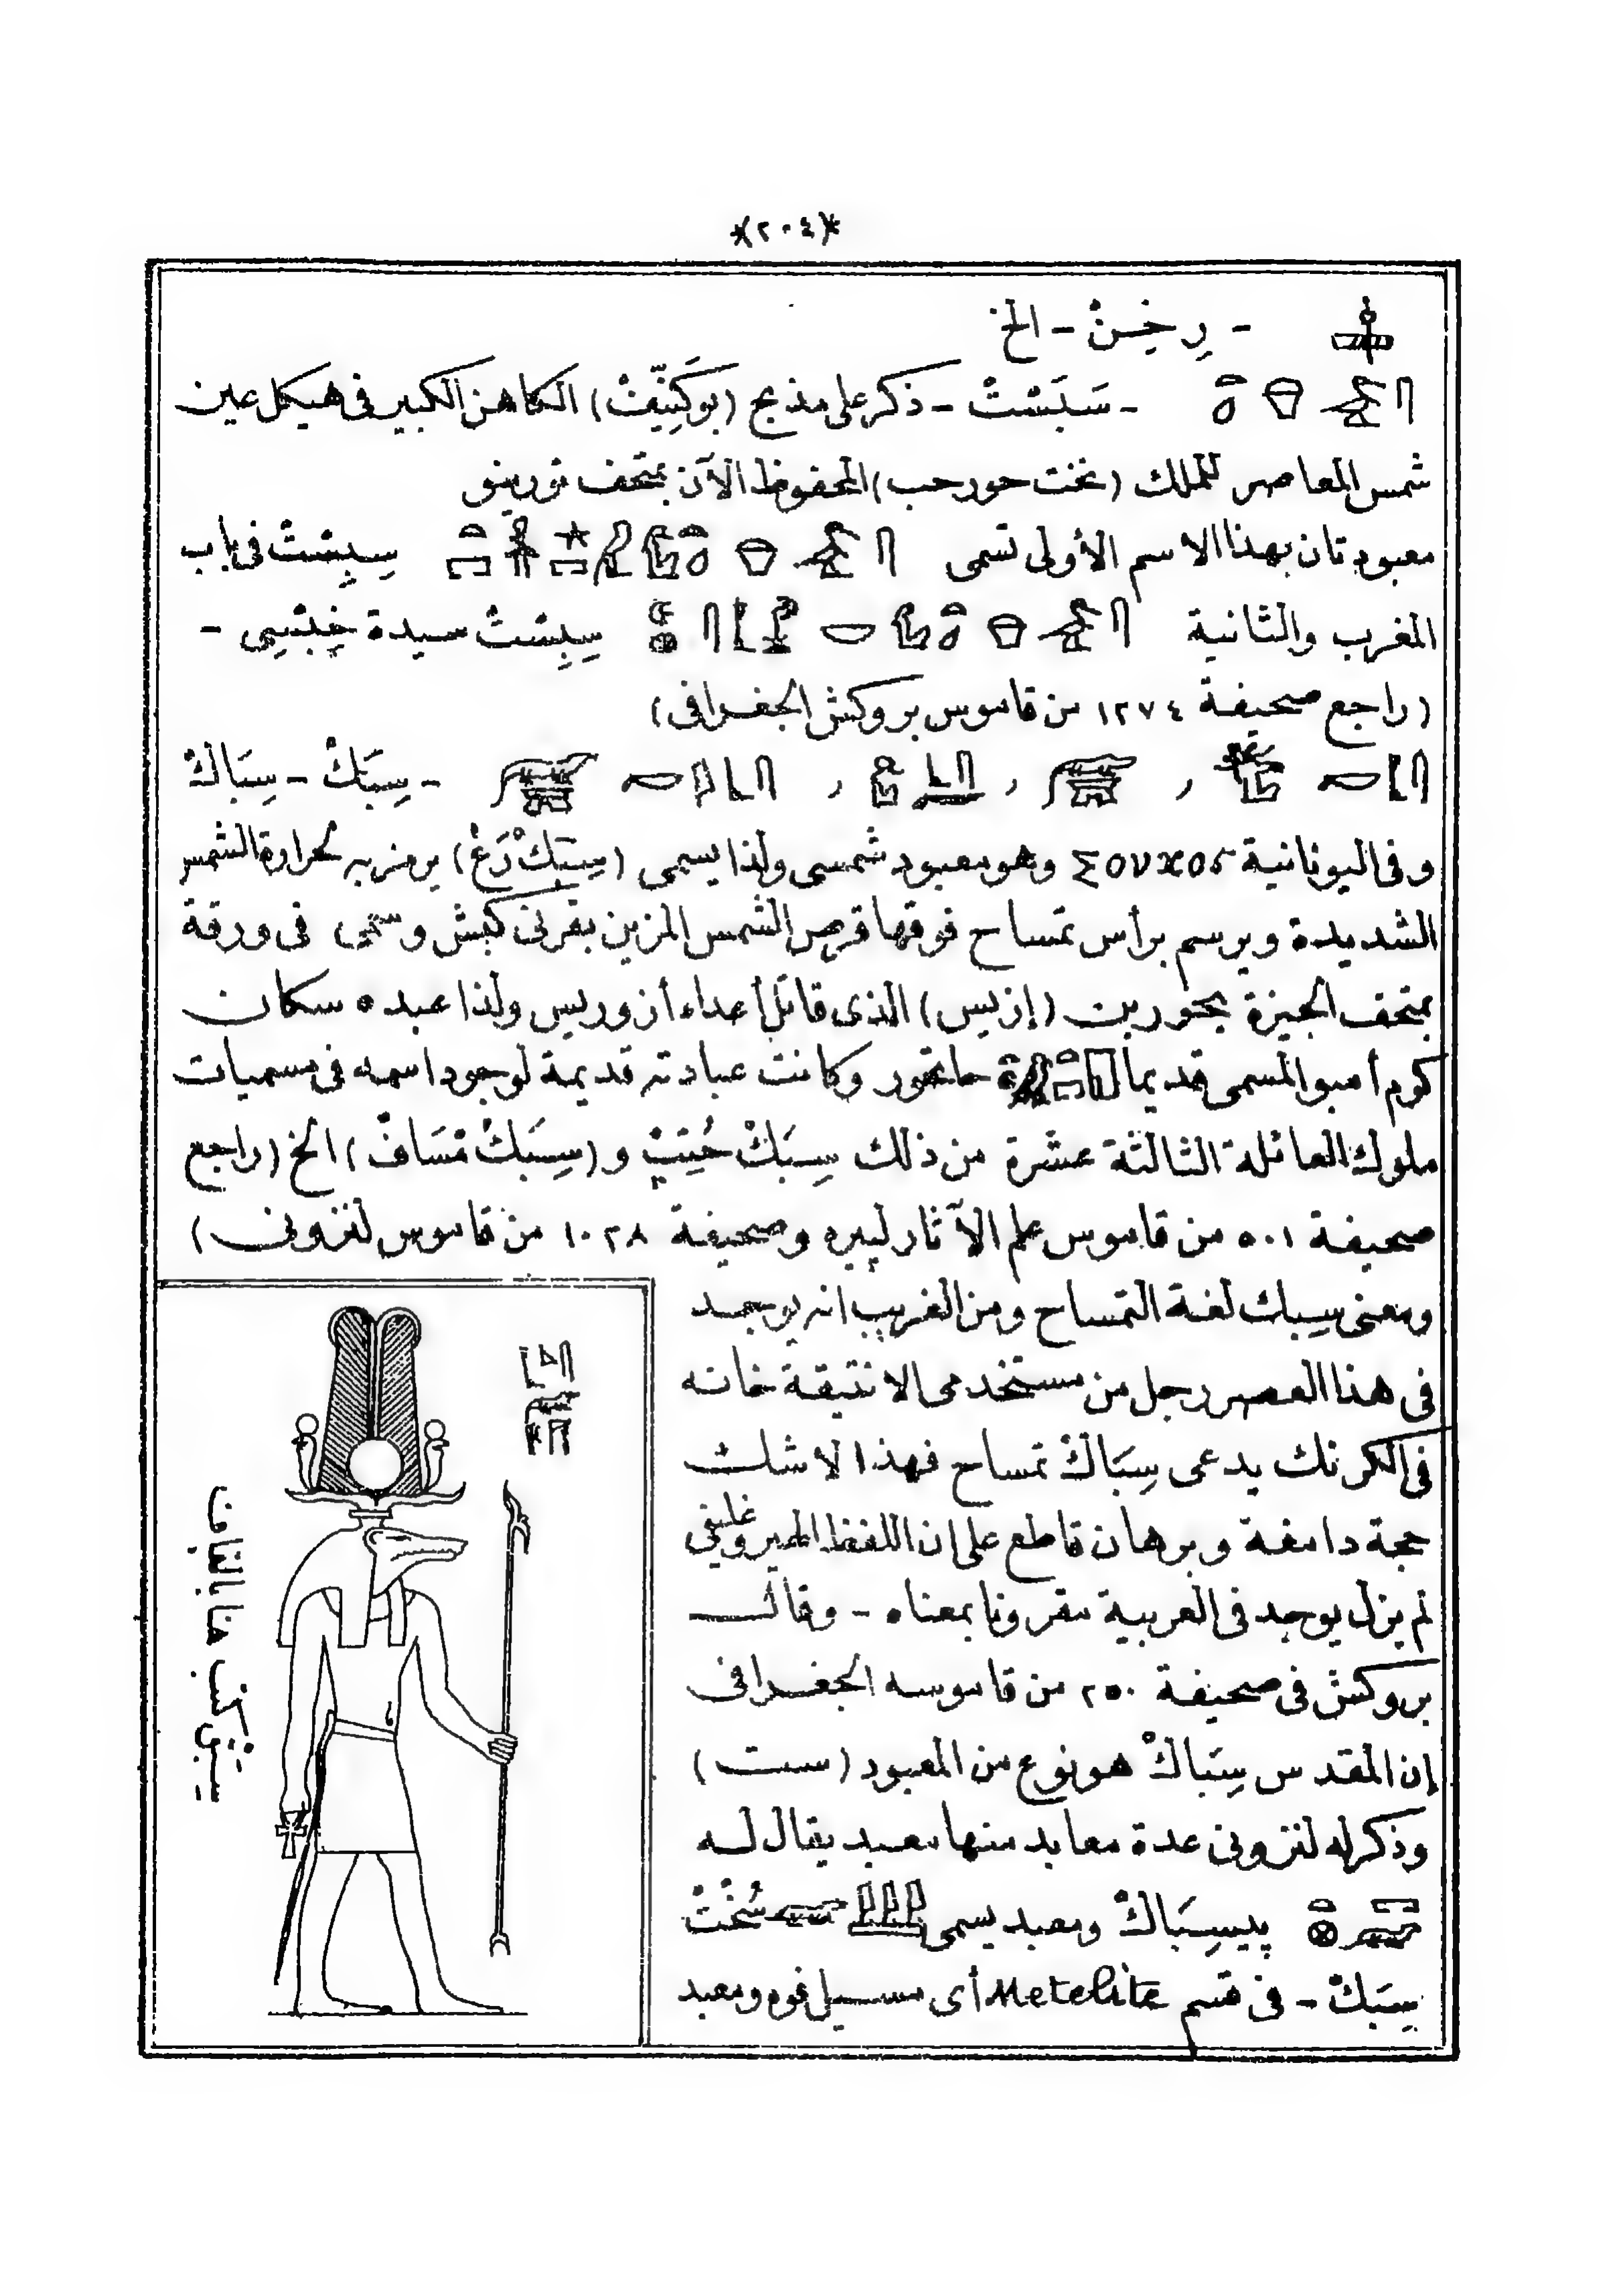 *(٢٠٤)*
- رِخِسنْ - الخ
- سَبَشْتْ - ذكر على مذبح (بوكَنِّيفْ) الكاهن الكبير فى هيكل عين
شمس المعاصر للملك (نخت حورحب) المحفوظ الآن بمتحف تورينو
معبودتان بهذا الاسم الأولى تسمى سِبِشْتْ فى باب
المغرب والثانية سِبِشْتْ سيدة خِبْتِسِى -
(راجع صحيفة ١٢٧٤ من قاموس بروكش الجغرافى)
، ، ، - سِبَكْ - سِبَاكْ
وفى اليونانية وهو معبود شمسى ولذا يسمى (سِبَكْ رَعْ) يرمز به لحرارة الشمس
الشديدة ويرسم برأس تمساح فوقها قرص الشمس المزين بقرنى كبش وسمى فى ورقة
بمتحف الجيزة بحور بن (إزيس) الذى قاتل أعداء أزوريس ولذا عبده سكان
كرم أمبو المسمى قديما حاتحور وكانت عبادته قديمة لوجود اسمه فى مسميات
ملوك العائلة الثالثة عشرة من ذلك سِبَكْ حُتِپْ و (سِبَكْ مْسَافْ) الخ (راجع
صحيفة ٥٠١ من قاموس علم الآثار لپيره وصحيفة ١٠٢٨ من قاموس لنزونى)
ومعنى سِبك لغة التمساح ومن الغريب انه يوجد
فى هذا العصر رجل من مستخدمى الانتيقة خانه
فى الكرنك يدعى سِبَاكْ تمساح فهذا لا شك
حجة دامغة وبرهان قاطع على ان اللفظ الهيروغليفى
لم يزل يوجد فى العربية مقرونا بمعناه - وقال
بروكش فى صحيفة ٢٥٠ من قاموسه الجغرافى
إن المقدس سِبَاكْ هو نوع من المعبود (ست)
وذكر له لنزونى عدة معابد منها معبد يقال له
پيسِبَاكْ ومعبد يسمى سُخْتْ
سِبَكْ - فى قسم Metelite أى مسيل فوه ومعبد